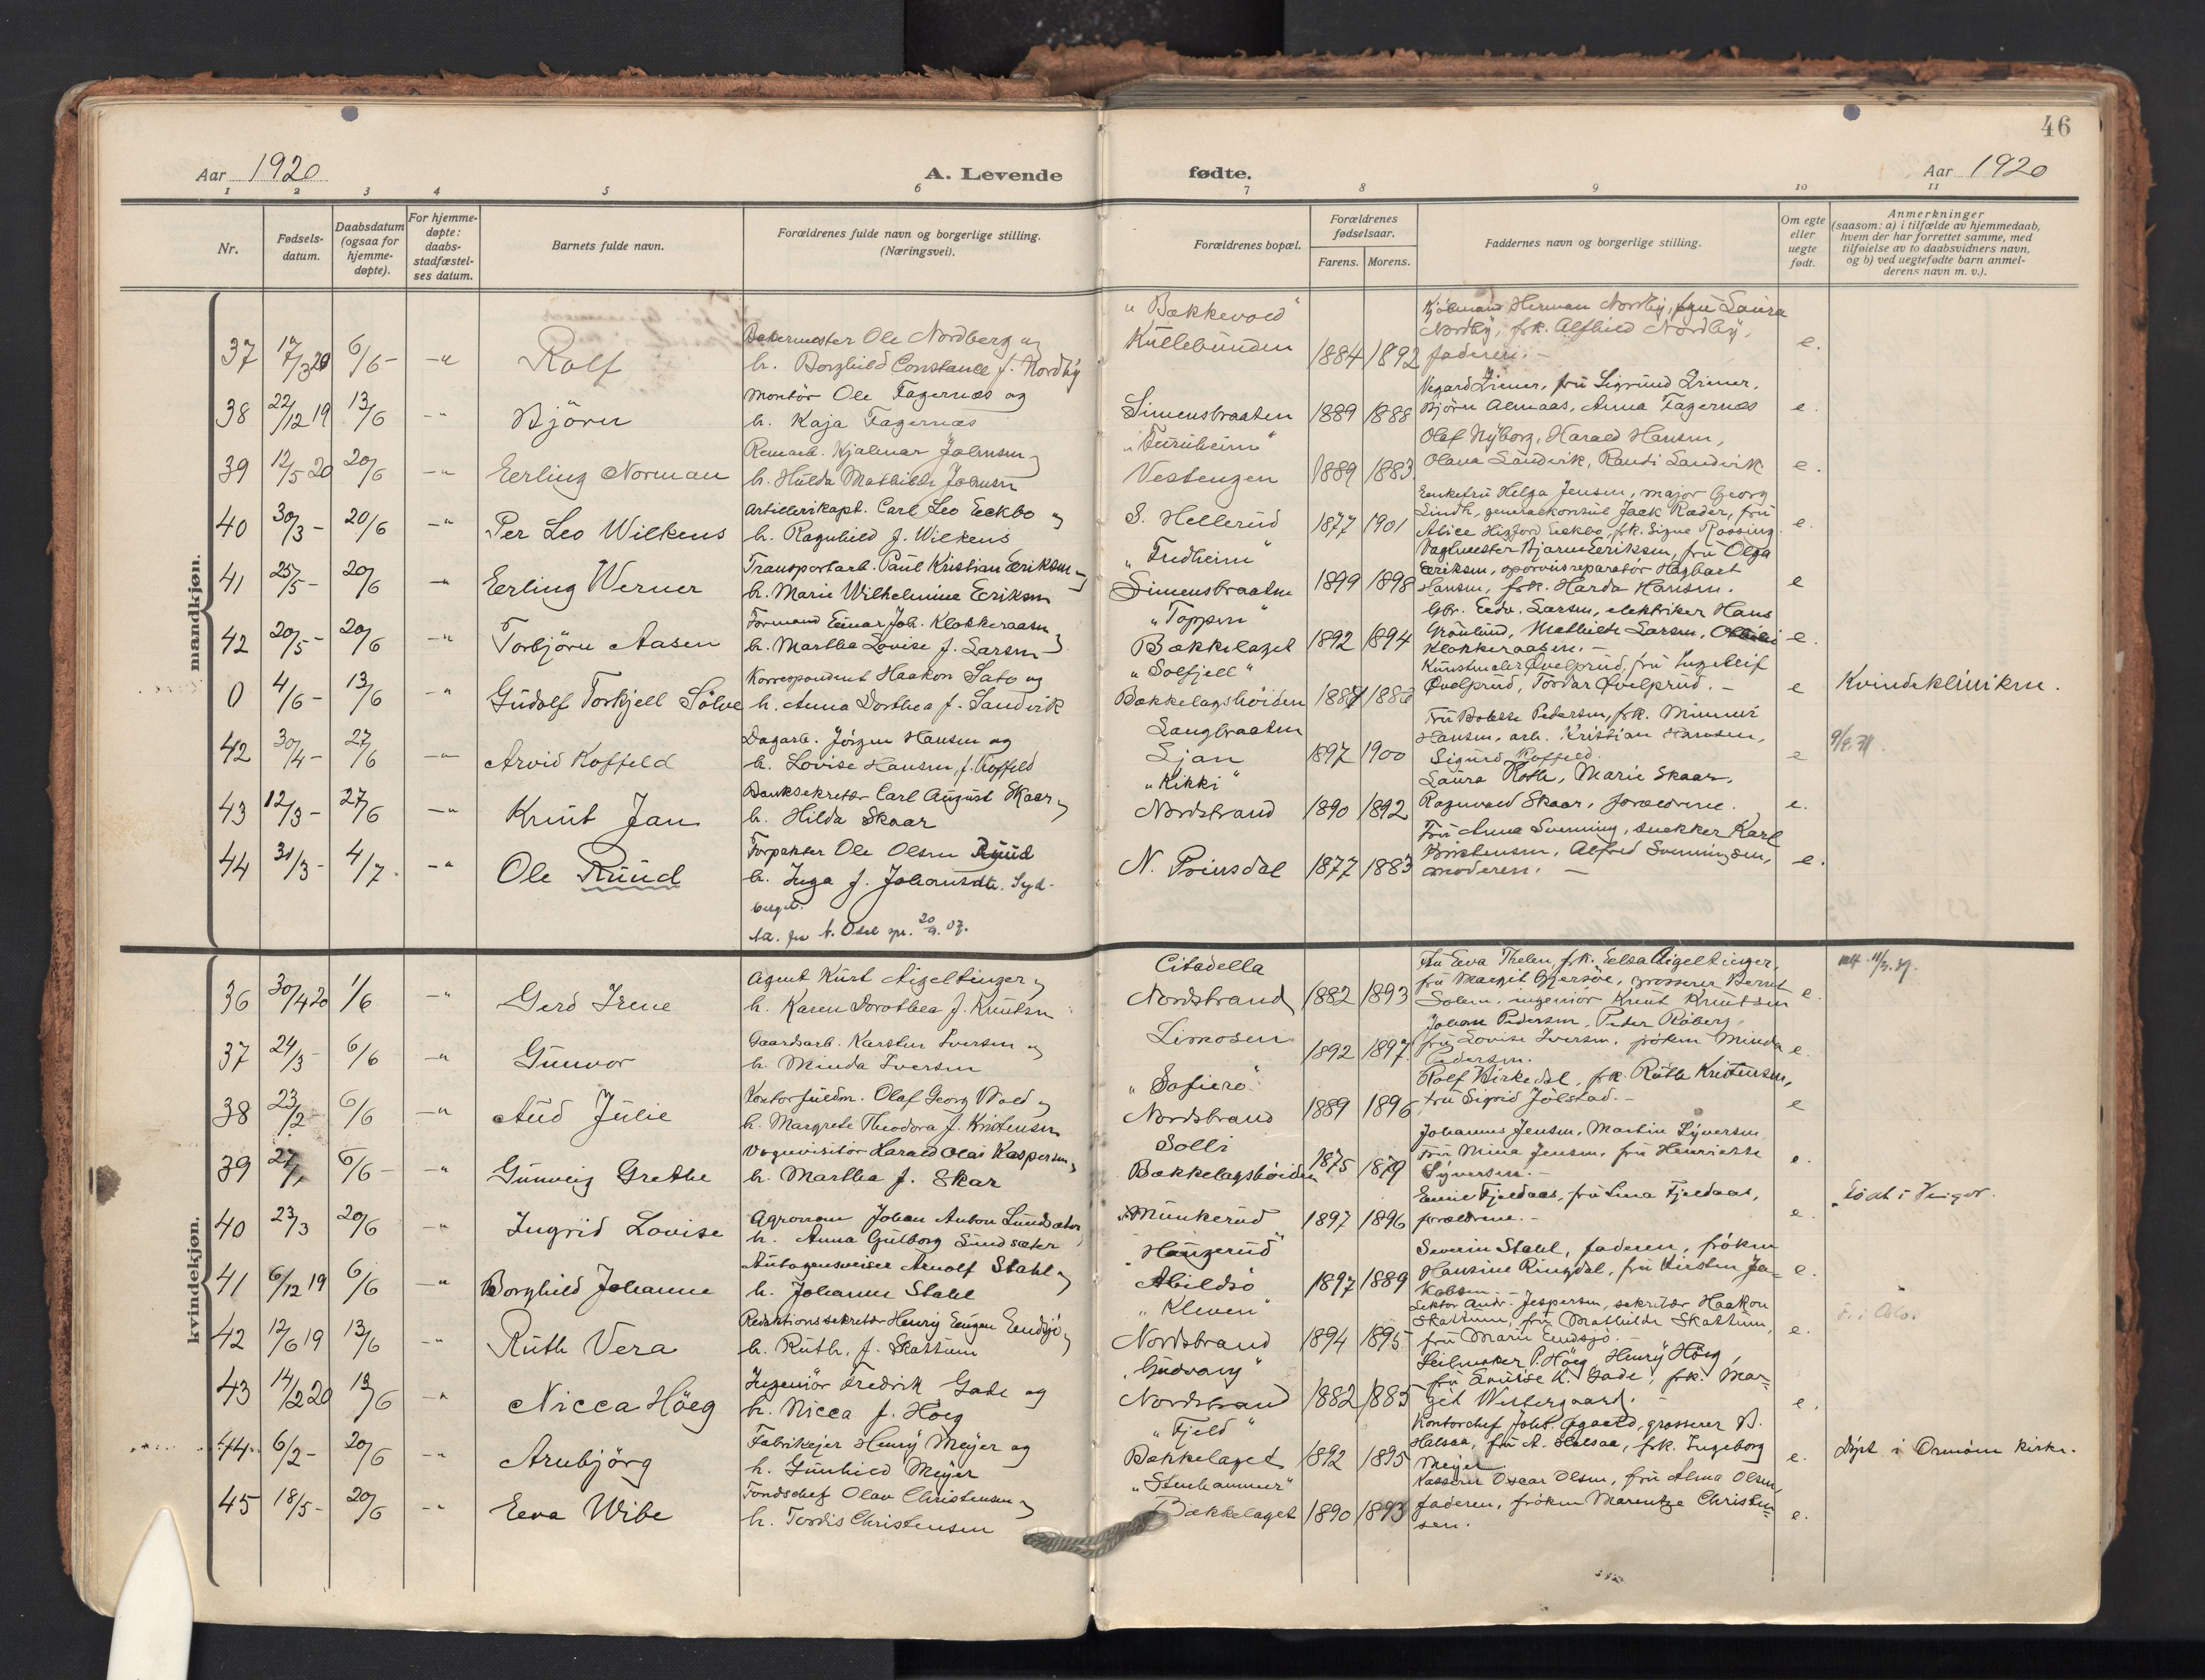 46
Aar 1920
A. Levende fødte.
Aar 1920
1 2 3 4 5 6 7 8 9 10 11
Nr.
Fødsels-
datum.
Daabsdatum
(ogsaa for
hjemme-
døpte).
For hjemme-
døpte:
daabs-
stadfæstel-
ses datum.
Barnets fulde navn.
Forældrenes fulde navn og borgerlige stilling.
(Næringsvei).
Forældrenes bopæl.
Forældrenes
fødselsaar.
Farens. Morens.
Faddernes navn og borgerlige stilling.
Om egte
eller
uegte
født.
Anmerkninger
(saasom: a) i tilfælde av hjemmedaab,
hvem der har forrettet samme, med
tilføielse av to daabsvidners navn,
og b) ved uegtefødte barn anmel-
derens navn m. v.).
mandkjøn.
37 17/3 20 6/6 - -"- Rolf
Bakermester Ole Nordberg og
h. Borghild Constance f. Nordby
"Bakkevold"
Kullebunden 1884 1892
Herman Nordby, fru Laura
Nordby, frk. Alfhild Nordby,
faderen. - e.
38 22/12 19 13/6 -"- Björn
Montör Ole Fagernæs og
h. Kaja Fagernæs
Simensbraaten 1889 1888
Vegard Zimer, fru Sigrund Zimer,
Björn Almaas, Anna Fagernæs e.
39 12/5 20 20/6 -"- Erling Norman
Hjalmar Johnsen og
h. Hulda Mathilde Johnsen
"Furuheim"
Vestengen 1889 1883
Olaf Nyborg, Harald Hansen,
Olava Sandvik, Randi Sandvik e.
40 30/3 - 20/6 -"- Per Leo Wilkens
Artillerikapt. Carl Leo Eckbo og
h. Ragnhild f. Wilkens
S. Hellerud 1877 1901
Enkefru Helga Jensen, major Georg
Lindh, generalkonsul Jack Ræder, fru
Alice Eckbo, frk. Signe e.
41 25/5 - 20/6 -"- Erling Werner
Transportarb. Paul Kristian Eriksen og
h. Marie Wilhelmine Eriksen
"Fredheim"
Simensbraaten 1899 1898
Vagtmester Bjarne Eriksen, fru Olga
Eriksen, sporveisreparatör Hagbart
Hansen, frk. Harda Hansen. e
42 20/5 - 20/6 -"- Torbjörn Aasen
Formand Einar Joh. Klokkeraasen og
h. Martha Lovise f. Larsen
"Toppen"
Bækkelaget 1892 1894
Gbr. Edv. Larsen, elektriker Hans
Grönlund, Mathilde Larsen,
Klokkeraasen. - e.
0 4/6 - 13/6 -"- Gudolf Torkjell Sölve
Korrespondent Haakon Sato og
h. Anna Dorthea f. Sandvik
"Solfjell"
Bækkelagshöiden
Kunstmaler Øvelprud, fru Ingeleif
Øvelprud, Tordar Øvelprud. - e Kvindekliniken.
42 30/4 - 27/6 -"- Arvid Koffeld
Dagarb. Jörgen Hansen og
h. Lovise Hansen, f. Koffeld
Langbraaten
Ljan 1897 1900
Fru Bolette Pedersen, frk. Minnui
Hansen, arb. Kristian Hansen,
Sigurd Koffeld. e
43 12/3 - 27/6 -"- Knut Jan
Banksekretær Carl August Skaar og
h. Hilda Skaar
"Kikki"
Nordstrand 1890 1892
Laura Roth, Marie Skaar,
Ragnvald Skaar, forældrene. e.
44 31/3 - 4/7. -"- Ole Ruud
Forpakter Ole Olsen Ruud
h. Inga f. Johansdtr. Syd-
N. Prinsdal 1877 1883
Fru Anna Svenning, snekker Karl
Kristensen, Alfred Svenningsen,
moderen. - e.
kvindekjøn.
36 30/4 20 1/6 -"- Gerd Irene
Agent Kurt Aigeltinger og
h. Karen Dorothea f. Knutsen
Citadella
Nordstrand 1882 1893
Fru Eva Thelen, frk. Elsa Aigeltinger,
fru Margit Gjersöe, grosserer Bernt
Solem, ingeniör Knut Knutsen e.
37 24/3 - 6/6 -"- Gunvor
Gaardsarb. Karsten Iversen og
h. Minda Iversen
Limosen 1892 1897
Johan Pedersen, Peder Röberg,
fru Lovise Iversen, fröken Minda
Pedersen. e.
38 23/2 - 6/6 -"- Aud Julie
Kontorfuldm. Olaf Georg Wold og
h. Margrete Theodora f. Kristensen
"Sofiero"
Nordstrand 1889 1896
Rolf Birkedal, frk. Ruth Kristensen,
fru Sigrid Jölstad. - e
39 27/ 6/6 - -"- Gunveig Grethe
Vognvisitör Harald Olai Kaspersen og
h. Martha f. Skar
Solli
Bækkelagshöiden 1875 1879
Johannes Jensen, Martin Syversen,
fru Mina Jensen, fru Henriette
Syversen. - e.
40 23/3 20/6 -"- Ingrid Lovise
Agronom Johan Anton Sundsæter
h. Anna Gulborg Sundsæter
"Munkerud 1897 1896
Emil Fjeldaas, fru Lina Fjeldaas,
forældrene. - e. Födt i Vinger.
41 6/12 19 6/6 -"- Borghild Johanne
Autogensveiser Arnolf Stahl og
h. Johanne Stahl
"Haugerud"
Abildsö 1897 1889
Severin Stahl, faderen, fröken
Hansine Ringdal, fru Kirsten Ja-
kobsen. - e.
42 12/6 19 13/6 -"- Ruth Vera
Redaktionssekretær Henry Eugen Endsjö og
h. Ruth, f. Skattum
"Kleven"
Nordstrand 1894 1895
Lektor Andr. Jespersen, sekretær Haakon
Skattum, fru Mathilde Skattum,
fru Marie Endsjö. - e. F. i Oslo.
43 14/2 20 13/6 -"- Nicca Höeg
Ingeniör Fredrik Gade og
h. Nicca f. Höeg
"Gudvang"
Nordstrand 1882 1885
Seilmaker P. Höeg, Henry Höeg,
fru Louise K. Gade, frk. Mar-
git Westergaard. e.
44 6/2 - 20/6 -"- Arnbjörg
Fabrikeier Henry Meyer og
h. Gunhild Meyer
"Fjeld"
Bækkelaget 1892 1895
Kontorchef Johs. Øgaard, grosserer B.
Halsaa, fru A. Halsaa, frk. Ingeborg
Meyer. e. Döpt i Ormöen kirke.
45 18/5 - 20/6 -"- Eva Wibe
Fondschef Olav Christensen og
h. Tordis Christensen
"Stenhammer"
Bækkelaget 1890 1893
Kasserer Oscar Olsen, fru Alma Olsen,
faderen, fröken Marentze Christen-
sen. e.